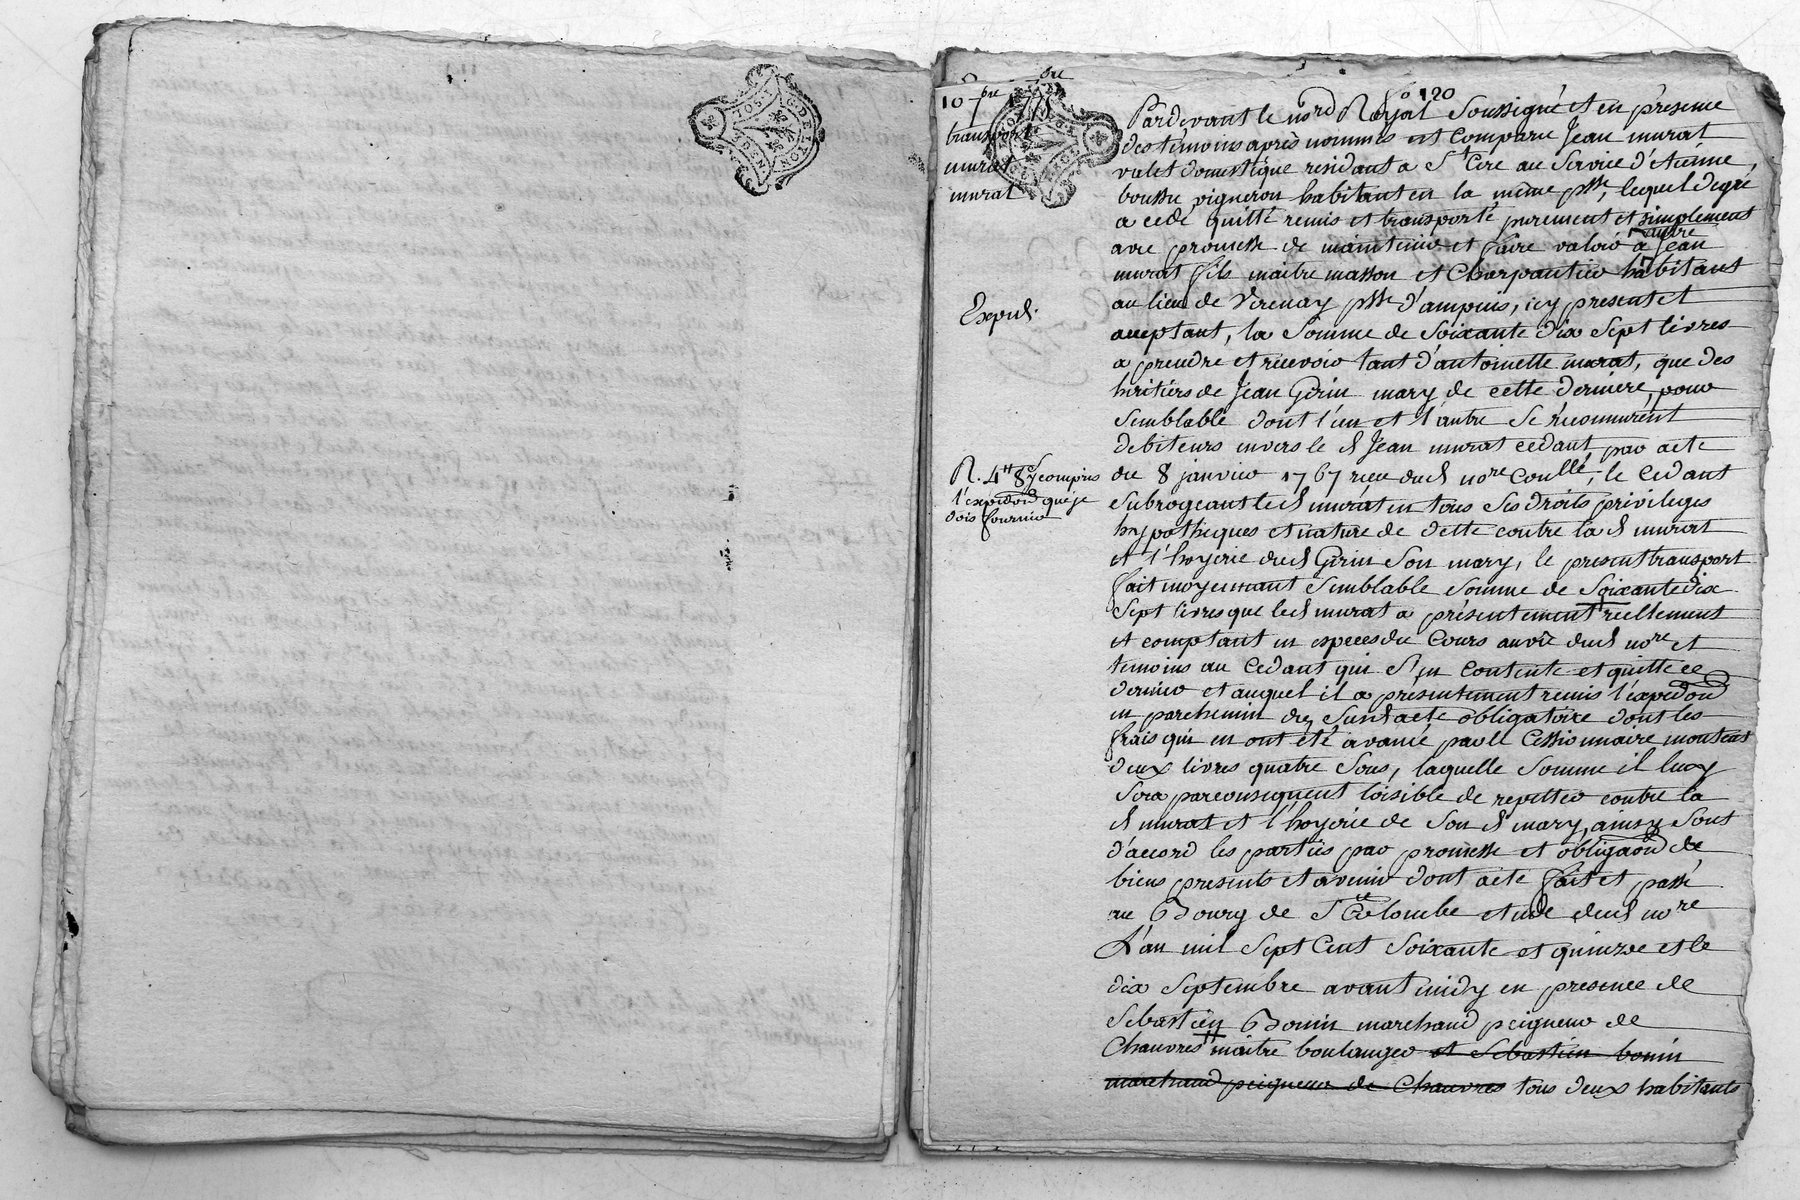 f° 120
10 7bre 1775
transport
murat
murat
Expedi.
R. 4tt 8s y compris
l'expedõn que je
dois fournir
Pardevant le nore Royal Soussigné et en présence
des témoins après nommés est comparu Jean murat
valet domestique residant a St Cire au Service d'Etienne
boussu vigneron habitant en la même psse, lequel de gré
a cedé quitté remis et transporté purement et simplement
avec promesse de maintenir et faire valoir à autre Jean
murat fils maitre masson et Charpantier habitant
au lieu de Verenay psse d'ampuis, icy present et
acceptant, la Somme de Soixante dix Sept livres
a prendre et recevoir tant d'antoinette murat, que des
heritiers de Jean Girin mary de cette derniere, pour
Semblable dont l'un et l'autre Se reconnurent
debiteurs envers le d Jean murat cedant par acte
du 8 janvier 1767 recu dud nore Coullé, le Cedant
Subrogeant led murat en tous Ses droits privileges
hypotheques et nature de dette contre lad murat
et l'hoyerie dud Girin Son mary, le present transport
fait moyennant Semblable Somme de Soixante dix
Sept livres que led murat a présentement reellement
et comptant en especes du Cours au vû dud nore et
temoins au Cedant qui S'en contente et quitte ce
dernier et auquel il a presentement remis l'expedõn
en parchemin du Susd acte obligatoire dont les
frais qui en ont été avancé par le Cessionnaire montent
deux livres quatre Sous, laquelle Somme il luy
Sera par consequent loisible de repetter contre la
d murat et l'hoyerie de Son d mary, ainsy Sont
d'accord les parties par promesse et obligaõn de
biens presents et avenir dont acte fait et passé
au Bourg de Ste Colombe etude dud nore
L'an mil Sept Cent Soixante et quinze et le
dix Septembre avant midy en presence de
Sebastien Bonin marchand peigneur de
Chanvres maitre boulanger et Sebastien bonin
marchand peigneur de Chanvres tous deux habitants